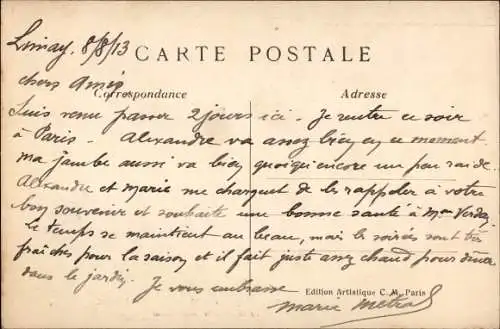 Limay. 8/8/13
CARTE POSTALE
chers amis
Correspondance
Adresse
Suis venu passer 2 jours ici. Je rentre ce soir
à Paris. Alexandre va assez bien en ce moment
ma jambe aussi va bien quoiqu'encore un peu raide.
Alexandre et Marie me chargent de les rappeler à votre
bon souvenir et souhaite une bonne santé à Mme
Le temps se maintient au beau, mais les soirées sont très
fraîches pour la saison et il fait juste assez chaud pour diner
dans le jardin. Je vous embrasse
Edition Artistique C. M. Paris
Marie